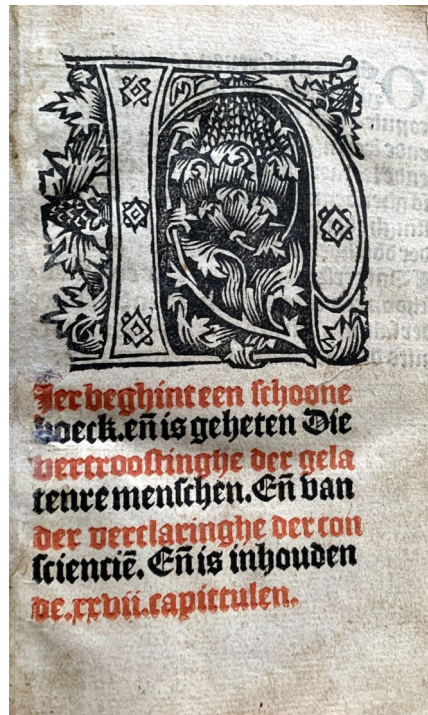 H
Jer beghint een schoone
boeck.en̄ is geheten Die
vertroostinghe der gela
tenre menschen. En̄ van
der verclaringhe der con
scienciē. En̄ is inhouden
de.xxvii.capittulen.